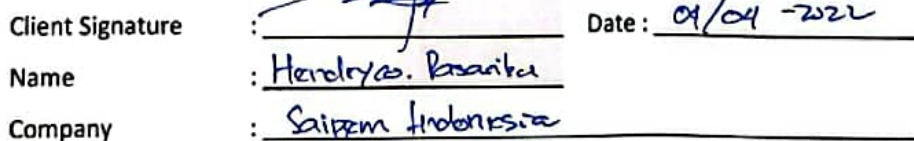 Client Signature : Date : 01/04 -2022
Name : Hendryco. Pasaribu
Company : Saipem Indonesia